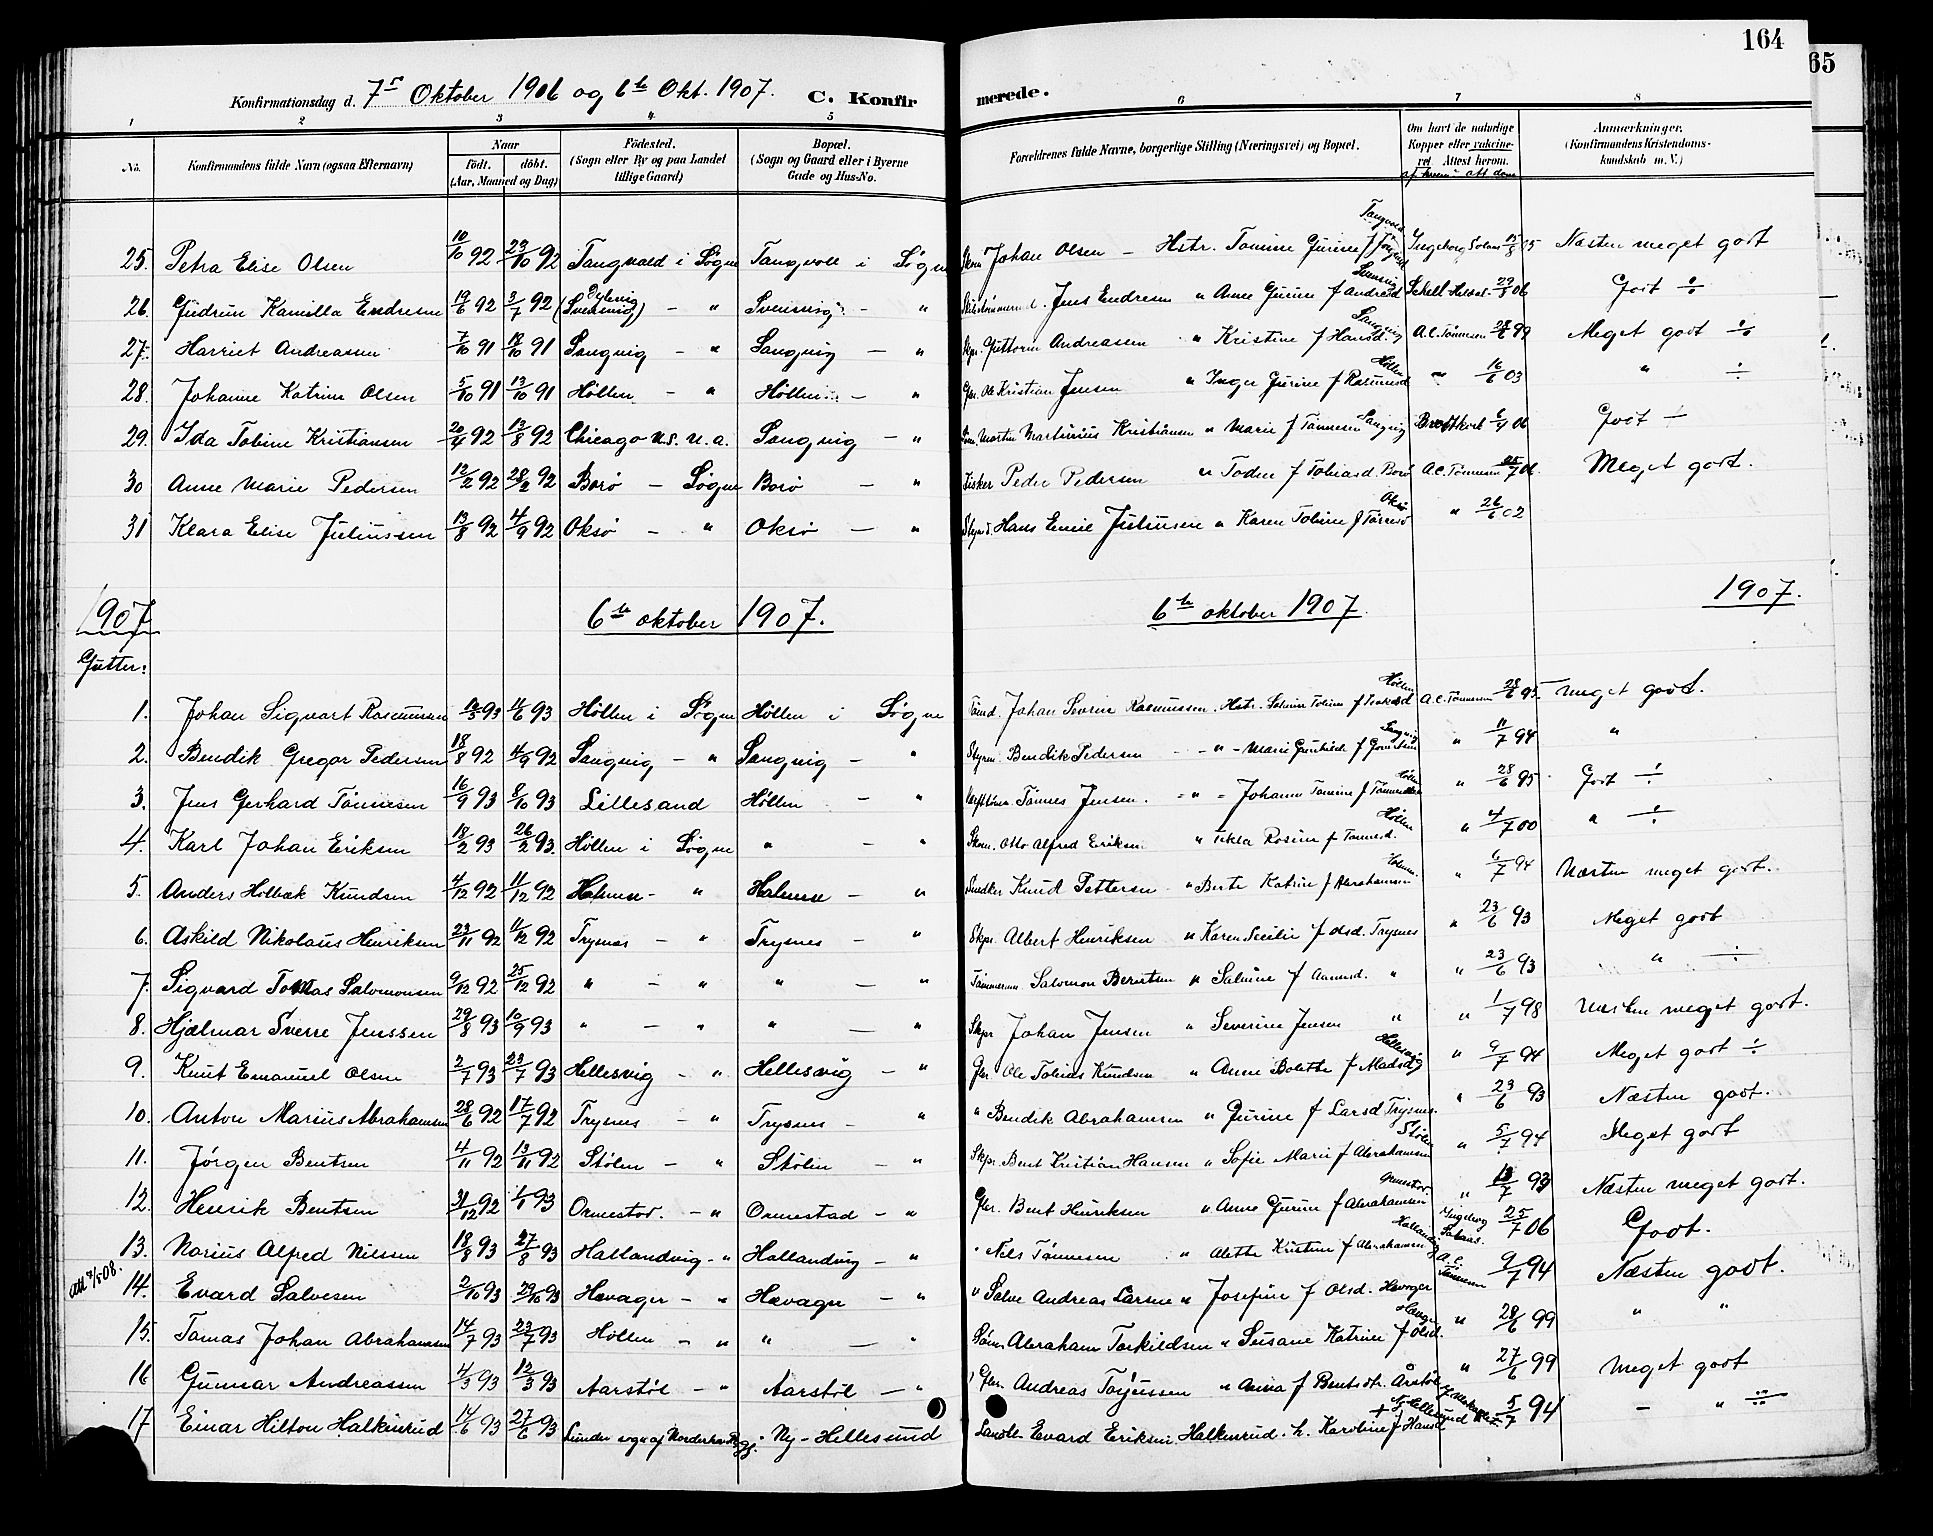 164
65
Konfirmationsdag d. 7de Oktober 1906 og 6te Okt. 1907. C. Konfir
merede.
1 2 3 4. 5 6 7 8
No. Konfirmandens fulde Navn (ogsaa Efternavn) Naar født. døbt. (Aar, Maaned og Dag) Fødested. (Sogn eller By og paa Landet tillige Gaard) Bopæl. (Sogn og Gaard eller i Byerne Gade og Hus-No. Forældrenes fulde Navne, borgerlige Stilling (Næringsvei) og Bopæl. Om havt de naturlige Kopper eller vakcineret Attest herom. Anmærkninger. (Konfirmandens Kristendomskundskab m. V.)
25. Petra Elise Olsen 10/10 92 23/10 92 Tangvald i Søgne Tangvall i Søgne Johan Olsen – Hstr. Tomine Gurine f. 15/8 05 Næsten meget godt
26. Gudrun Kamilla Endresen 19/6 92 3/7 92 (Svensvig) – " Svensvig – " Jens Endresen " Anne Gurine f Andreasd 06 Godt
27. Harriet Andreasen 7/10 91 18/10 91 Langvig – " Langvig – " Guttorm Andreasen " Kristine f Hansd. Langvig A.C. Tønnesen 28/6 99 Meget godt ÷
28. Johanne Katrine Olsen 5/10 91 13/10 91 Høllen – " Høllen – " Ole Kristian Jensen " Inger Gurine f Rasmusd Høllen " 16/6 03 " ÷
29. Ida Tobine Kristiansen 20/4 92 13/8 92 Chicago U.S.U.A. Langvig – " Martin Martinius Kristiansen " Marie f Tønnesen Langvig 06 Godt ÷
30 Anne Marie Pedersen 12/2 92 28/2 92 Borø – Søgne Borø – " Fisker Peder Pedersen " Todne f Tobiasd. Borø A.C. Tønnesen 25/7 06. Meget godt.
31 Klara Elise Juliussen 13/8 92 4/9 92 Oksø – " Oksø – " Hans Emil Juliussen " Karen Tobine f Oksø " 26/6 02
1907 6te oktober 1907. 6te oktober 1907 1907.
Gutter:
1. Johan Sigvart Rasmussen 93 4/6 93 Høllen i Søgne Høllen i Søgne Johan Severin Rasmussen. Hstr. Tobine f Høllen A.C. Tønnesen 28/6 95. Meget godt.
2. Bendik Gregor Pedersen 18/8 92 4/9 92 Langvig – " Langvig – " Bendik Pedersen – " – Marie f Langvig " 11/7 94 "
3. Jens Gerhard Tønnesen 16/9 93 8/10 93 Lillesand Høllen – " Tønnes Jensen. – " – Johanne Tomine f Høllen " 28/6 95 Godt ÷
4. Karl Johan Eriksen 18/2 93 26/2 93. Høllen i Søgne " – " Otto Alfred Eriksen " Tekla Rosine f Høllen " 4/7 00 " ÷
5. Anders Holbæk Knudsen 4/12 92 11/12 92 Holmen – " Holmen – " Snedker Knud Pettersen " Berte Katrine f Abrahamsen " 6/7 94 Næsten meget godt.
6. Askild Nikolaus Henriksen 23/11 92 11/12 92 Trysnes – " Trysnes – " Skpr. Albert Henriksen " Karen Secilie f Olsd. Trysnes " 23/6 93 Meget godt
7. Sigvard Tomas Salomonsen 9/12 92 25/12 92 " – " " – " Tømmerm. Salomon Berntsen " Salvine f " " 23/6 93 " ÷
8. Hjalmar Sverre Jenssen 29/8 93 10/9 93 " – " " – " Skpr Johan Jensen " Severine Jensen " " 1/7 98 Næsten meget godt.
9. Knut Emanuel Olsen 2/7 93 23/7 93 Hellesvig – " Hellesvig – " Gbr. Ole Tobias Knudsen " Anne Bolette f Madsd Hellesvig " 9/7 94 Meget godt ÷
10. Anton Marius Abrahamsen 28/6 92 17/7 92 Trysnes – " Trysnes – " " Bendik Abrahamsen " Gurine f Larsd Trysnes. " 23/6 93 Næsten godt.
11. Jørgen Bentsen 4/11 92 13/11 92 Stølen – " Stølen – " Skpr. Bent Kristian Hansen " Sofie Marie f Abrahamsen Stølen " 5/7 94 Meget godt
12. Henrik Bentsen 31/12 92 93 Ormestad. – " Ormestad – " Gbr. Bent Henriksen " Anne Gurine f Abrahamsen Ormestad. " 18/7 93 Næsten meget godt.
13. Marius Alfred Nilssen 18/8 93 27/8 93 Hallandvig – " Hallandvig – " " Nels Tønnesen " Alette Kristine f Abrahamsen Hallandvig Ingeborg 25/7 06 Godt.
Att 7/5 08. 14. Evard Salvesen 2/10 93 29/10 93 Havager – " Havager – " " Salve Andreas Larsen " Josefine f Olsd. Havager A.C. Tønnesen 9/7 94 Næsten godt.
15. Tomas Johan Abrahamsen 14/7 93 23/7 93 Høllen – " " – " Abraham Torkildsen " Susane Katrine f Olsd. " 28/6 99 " "
16 Gunnar Andreassen 4/3 93 12/3 93 Aarstøl – " Aarstøl – " Gbr. Andreas Torjussen " Anna f Bentsdtr. Årstøl " 27/6 99 Meget godt
17 Einar Hilton Halkinrud 14/6 93 27/6 93 Lunder sogn af Norderhov Ny-Hellesund Evard Eriksen Halkenrud. h. Karoline f Hansd Ny Hellesund 5/7 94 – " ÷